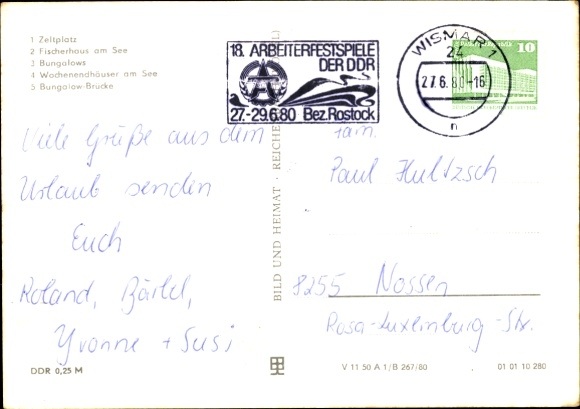 1 Zeltplatz
2 Fischerhaus am See
3 Bungalows
4 Wochenendhäuser am See
5 Bungalow-Brücke
18. ARBEITERFESTSPIELE
DER DDR
27.-29.6.80 Bez. Rostock
WISMAR 1
24
27.6.80-16
n
10
Viele Grüße aus dem
Urlaub senden
Euch
Roland, Bärbel,
Yvonne + Susi
BILD UND HEIMAT · REICHE
Fam.
Paul Hultzsch
8255 Nossen
Rosa-Luxemburg-Str.
DDR 0,25 M
V 11 50 A 1/B 267/80
01 01 10 280